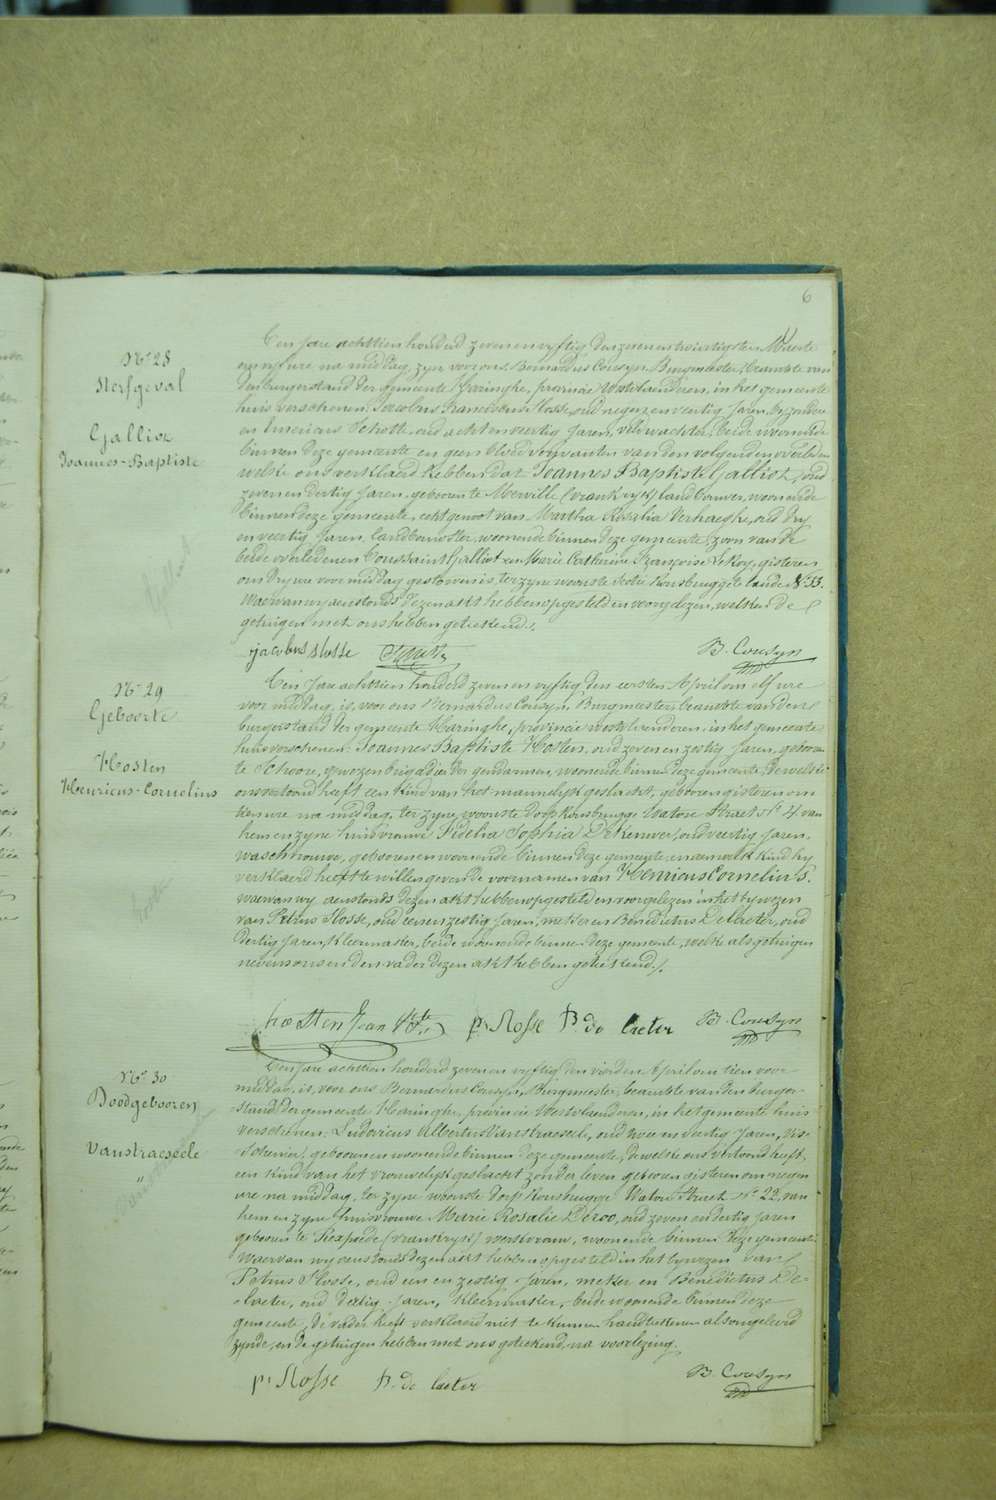 6
N° 28
Sterfgeval
Galliot
Joannes-Baptiste
Een jare achttien honderd zevenenvyftig, den zevenentwintigsten Maerte
om ure na middag, zyn voor ons Bernardus Cousyn, Burgmeester, beambte van
den burgerstand der gemeente Haringhe, provincie Westvlaenderen, in het gemeente
huis verschenen: Jacobus Franciscus Slosse, oud negenenveertig jaren, byzondere
en Amerieus Schott, oud achtenveertig jaren, veldwachter, beide woonende
binnen deze gemeente en geen bloedverwanten van den volgenden overleden
welke ons verklaerd hebben dat Joannes Baptiste Galliot, oud
zevenendertig jaren, geboren te Merville (vrankryk) landbouwer, woonende
binnen deze gemeente, echtgenoot van Martha Rosalia Verhaeghe, oud dry
enveertig jaren, landbouwster, woonende binnen deze gemeente, zoon van de
beide overledenen Toussaint Galliot en Marie Catherine Françoise LeRoy, gisteren
om dry ure voor middag gestorven is, ter zyne woonste sectie Ronsbrugge lande N° 33.
Waervan wy aenstonds dezen akt hebben opgesteld en voorgelezen, welken de
getuigen met ons hebben geteekend./.
jacobus slosse Schott B. Cousyn
N° 29
Geboorte
Hosten
Henricus-Cornelius
Een jare achttien honderd zevenenvyftig, den eersten April om elf ure
voor middag, is, voor ons Bernardus Cousyn, Burgmeester, beambte van den
burgerstand der gemeente Haringhe, provincie westvlaenderen, in het gemeente
huis verschenen: Joannes Baptiste Hosten, oud zevenenzestig jaren, geboren
te Schoore, gewezen brigadier der gendarmen, woonende binnen deze gemeente, dewelke
ons vertoond heeft een kind van het mannelyk geslacht, geboren gisteren om
tien ure na middag, ter zyne woonste dorp Ronsbrugge Watou Straet N° 4, van
hem en zyne huisvrouwe Fidelia Sophia Dekeuwer, oud veertig jaren,
waschvrouwe, geboren en woonende binnen deze gemeente, en aen welk kind hy
verklaerd heeft te willen geven de voornamen van Henricus Cornelius.
waervan wy aenstonds dezen akt hebben opgesteld en voorgelezen in het bywezen
van Petrus Slosse, oud eenenzestig jaren, metser en Benedictus DeLaeter, oud
dertig jaren, kleermaker, beide woonende binnen deze gemeente, welke als getuigen
nevens ons en den vader dezen akt hebben geteekend./.
hosten Jean Bte p. slosse B. de laeter B. Cousyn
N° 30
Doodgeboren
Vanstraeseele
"
Een jare achttien honderd zevenenvyftig den vierden April om tien voor
middag, is, voor ons Bernardus Cousyn, Burgmeester, beambte van den burger
stand der gemeente Haringhe, provincie Westvlaenderen, in het gemeente huis
verschenen: Ludovicus Albertus Vanstraeseele, oud twee en veertig jaren,
geboren en woonende binnen deze gemeente, dewelke ons vertoond heeft,
een kind van het vrouwelyk geslacht zonder leven geboren gisteren om negen
ure na middag, ter zyne woonste dorp Ronsbrugge Watou Straet N° 22, van
hem en zyne huisvrouwe Marie Rosalie Deroo, oud zeven en dertig jaren
geboren te Rexpoede (vrankryk) werkvrouw, woonende binnen deze gemeente
Waervan wy aenstonds dezen akt hebben opgesteld in het bywezen van
Petrus Slosse, oud een en zestig jaren, metser en Benedictus De-
-laeter, oud dertig jaren, kleermaker, beide woonende binnen deze
gemeente, de vader heeft verklaerd niet te kunnen handteekenen als ongeleerd
zynde, en de getuigen hebben met ons geteekend, na voorlezing.
p. slosse B. de laeter B. Cousyn